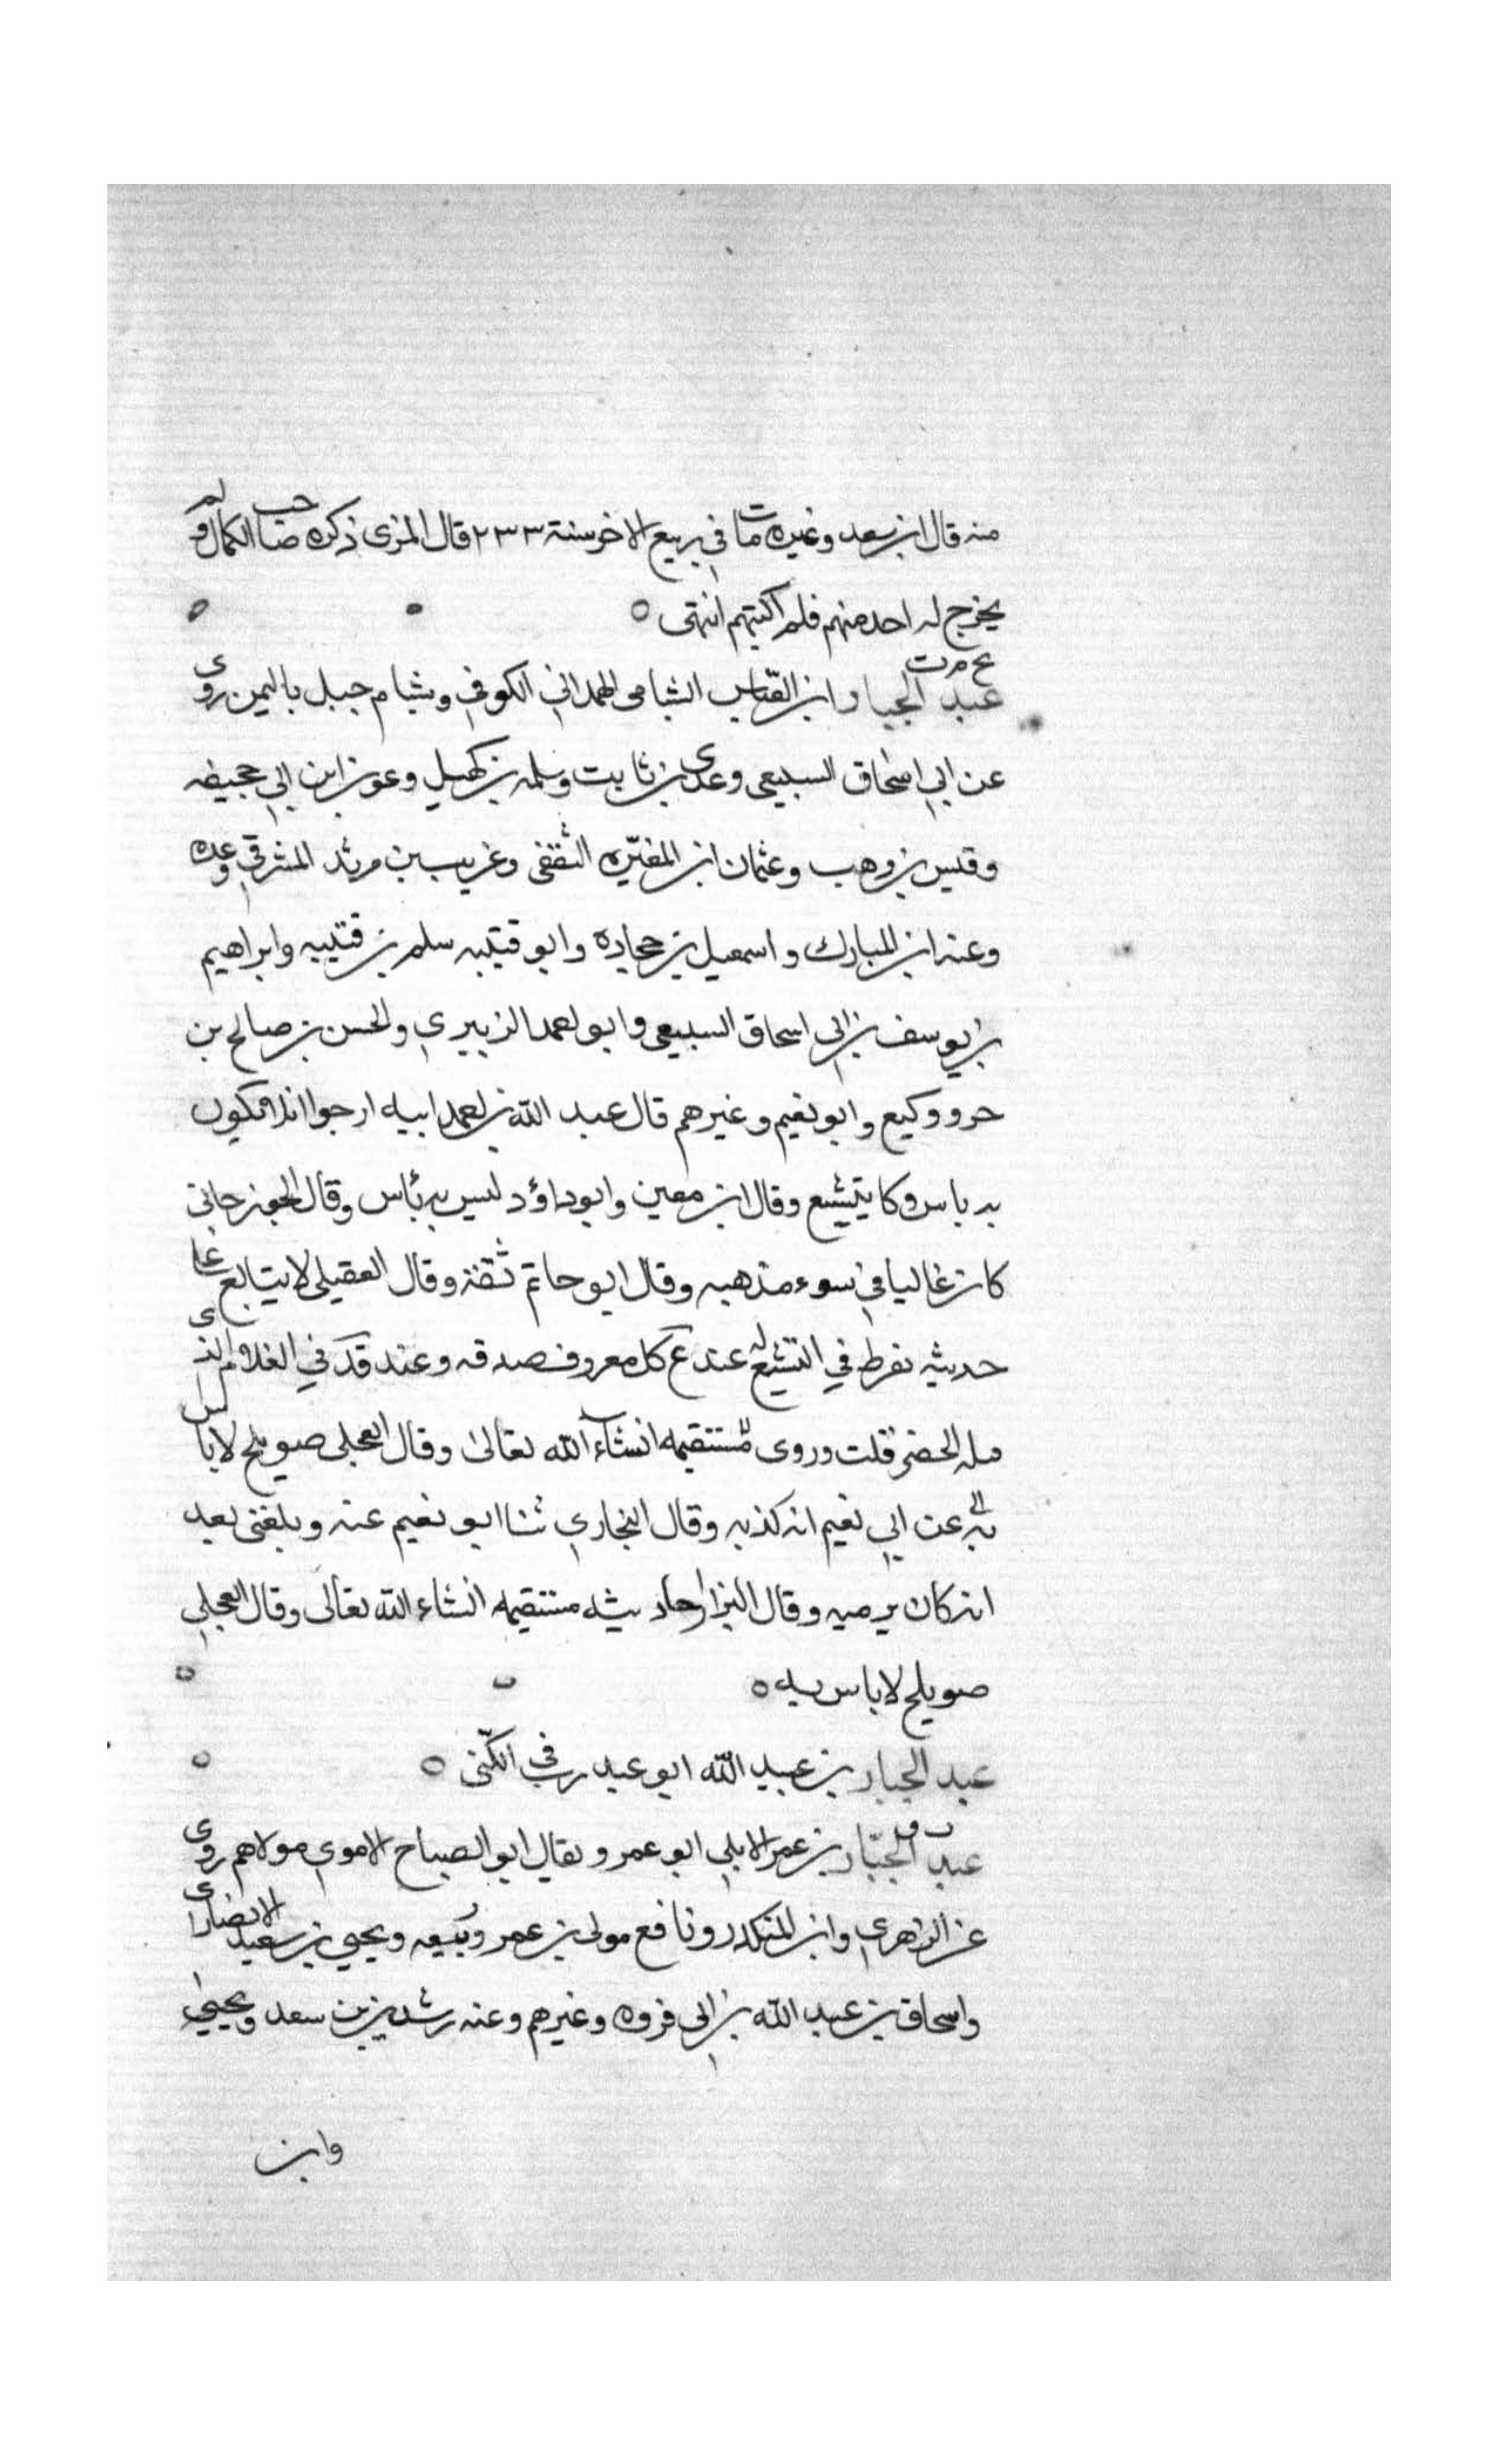 منه قال ابن سعد وغيره مات في ربيع الاخر سنة ٢٣٣ قال المزي ذكره صاحب الكمال ولم
يخرج له احد منهم فلم اكتبهم انتهى ه
عبد الجبار ابن العباس الشبامي الهمداني الكوفي وشبام جبل باليمن روى
عن ابي اسحاق السبيعي وعدي بن ثابت وسلمه بن كهيل وعون ابن ابي جحيفه
وقيس بن وهب وعثمان ابن المغيره الثقفي وغريب بن مرثد المشرقي وعده
وعنه ابن المبارك واسمعيل بن حجاده وابو قتيبه سلم بن قتيبه وابراهيم
بن يوسف بن ابي اسحاق السبيعي وابو احمد الزبيري والحسن بن صالح بن
حر ووكيع وابو نعيم وغيرهم قال عبد الله بن احمد ابيه ارجوا ان لا يكون
به باس وكا يتشيع وقال ابن معين وابو داؤد ليس به بأس وقال الجوزجاني
كان غاليا في سوء مذهبه وقال ابو حاتم ثقة وقال العقيلي لا يتابع علي
حديثه نفرط في التشيع له عند ع كل معروف صدقه وعند قد في الغلا والذي
الحضر قلت وروى مستقيمه انشاء الله تعالى وقال العجلي صويلح لا باس
به عن ابي نعيم انه كذبه وقال البخاري ثنا ابو نعيم عنه وبلغني بعد
انه كان يرميه وقال البزار احاديثه مستقيمه انشاء الله تعالى وقال العجلي
صويلح لا باس به ه
عبد الجبار بن عبيد الله ابو عبد رب في الكنى ه
عبد الجبّار بن عمر الايلي ابو عمر ويقال ابو الصباح الاموي مولاهم روى
عن الزهري وابن المنكدر ونافع مولى بن عمر وربيعه ويحيي بن سعيد الانصاري
واسحاق بن عبد الله بن ابي فروه وغيرهم وعنه رشدين بن سعد ويحيي
وابن